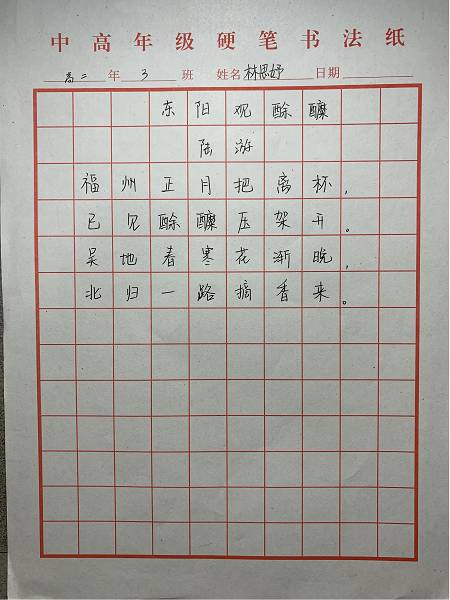 中高年级硬笔书法纸
高二年3班 姓名林思妤日期
东阳观酴醾
陆游
福州正月把离杯,
已见酴醾压架开。
吴地春寒花渐晚,
北归一路摘香来。